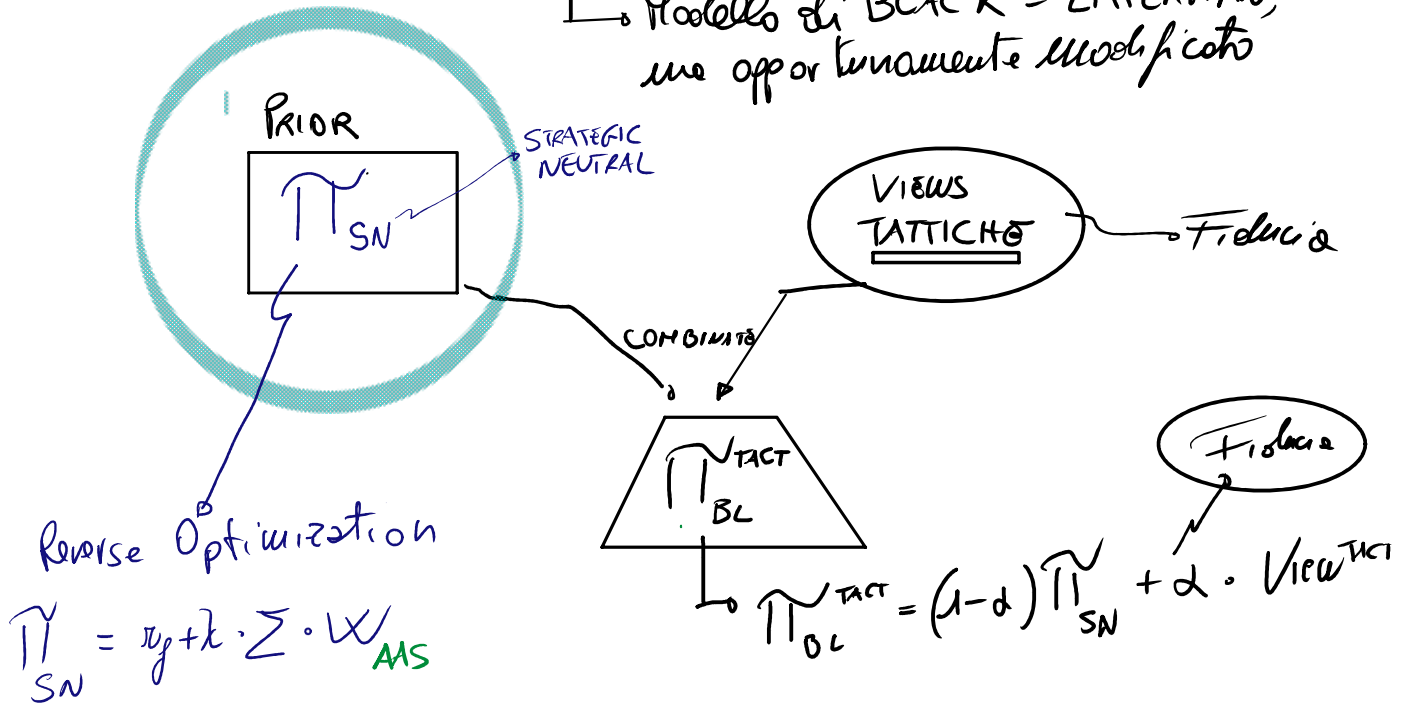 Modello di BLACK - LITTERMAN,
ma opportunamente modificato
PRIOR
STRATEGIC
NEUTRAL
Π SN
VIEWS
TATTICHE
Fiducia
COMBINATE
Π TACT BL
Fiducia
Reverse Optimization
Π BL TACT = (1-α) Π SN + α · View TACT
Π SN = rf + λ · Σ · W AAS